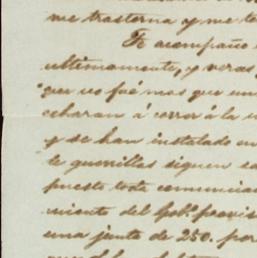 me trasterna y me te
Te acompaño
ultimamente, y veras
que no fué mas que un
echaran á correr á la
y se han instalado en
le guerrillas siguen
puesto toda comunica
miento del Gobº. provis
una junta de 250. por